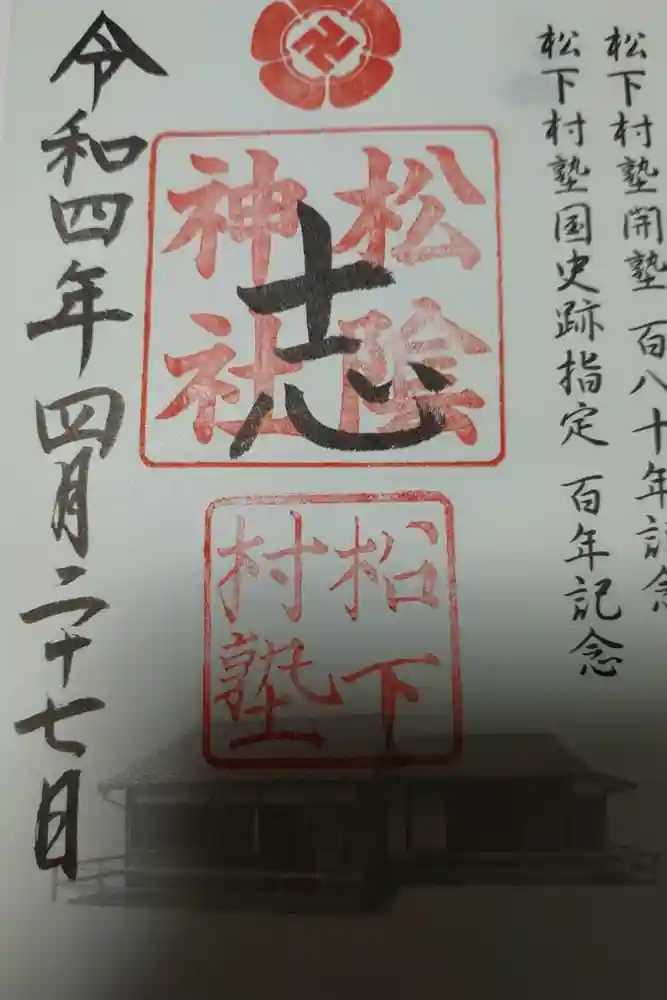 松下村塾開塾 百八十年記念
松下村塾国史跡指定 百年記念
松陰
神社
志
松下
村塾
令和四年四月二十七日